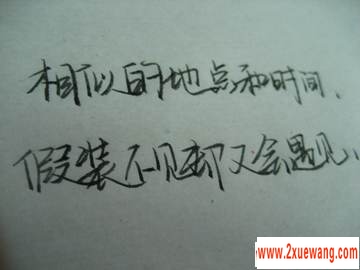 相似的地点和时间、
假装不见却又会遇见、
www.2xuewang.com